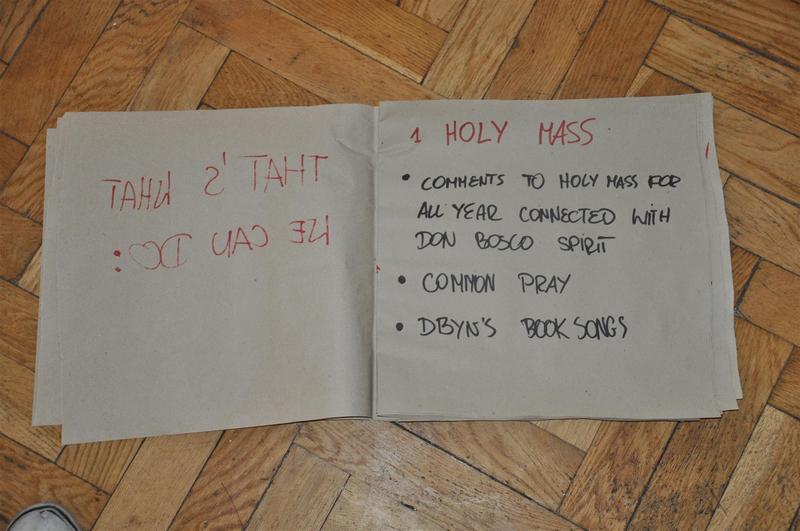 THAT'S WHAT
WE CAN DO:
1 HOLY MASS
• COMMENTS TO HOLY MASS FOR
ALL YEAR CONNECTED WITH
DON BOSCO SPIRIT
• COMMON PRAY
• DBYN'S BOOK SONGS